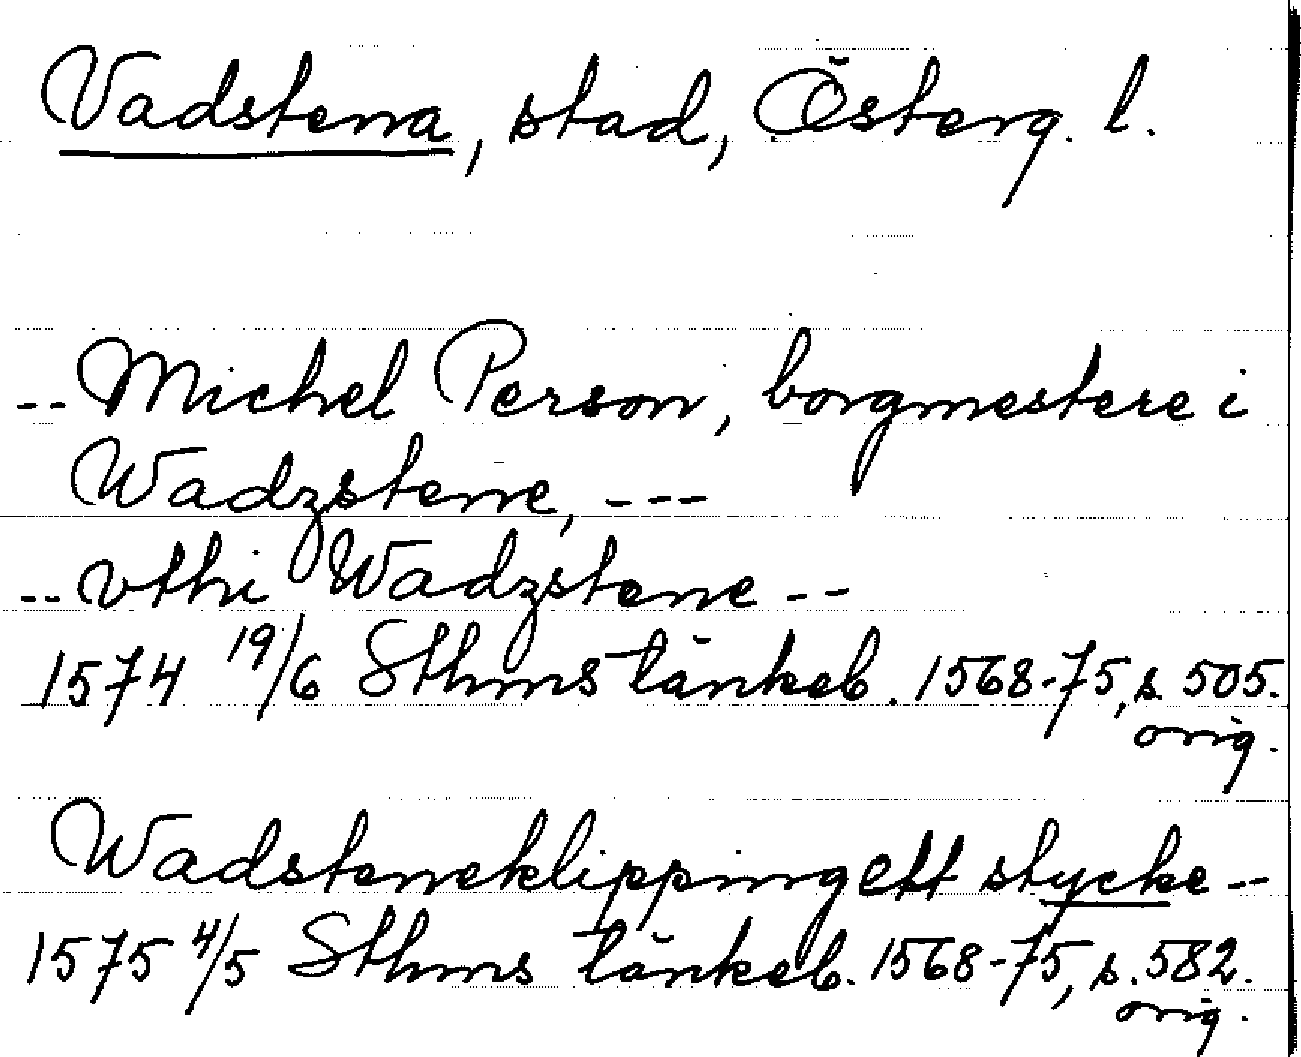 Vadstena, stad, Österg. l.
-- Michel Person, borgmestere i
Wadzstene, ---
-- vthi Wadzstene --
1574 19/6 Sthms tänkeb. 1568-75, s. 505.
orig.
Wadsteneklipping ett stycke --
1575 4/5 Sthms tänkeb. 1568-75, s. 582.
orig.